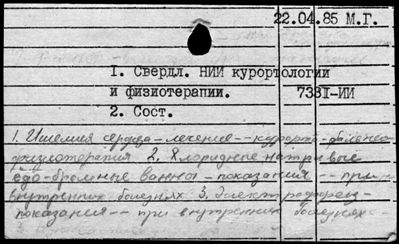 22.04.85 М.Г.
1. Свердл. НИИ курортологии
и физиотерапии. 7381-ИИ
2. Сост.
1. Ишемия сердца - лечение -- курорт. бальнео
физиотерапия 2. Хлоридные натриевые
йодо-бромные ванны - показания -- при
внутренних болезнях 3. Электрофорез -
показания -- при внутренних болезнях